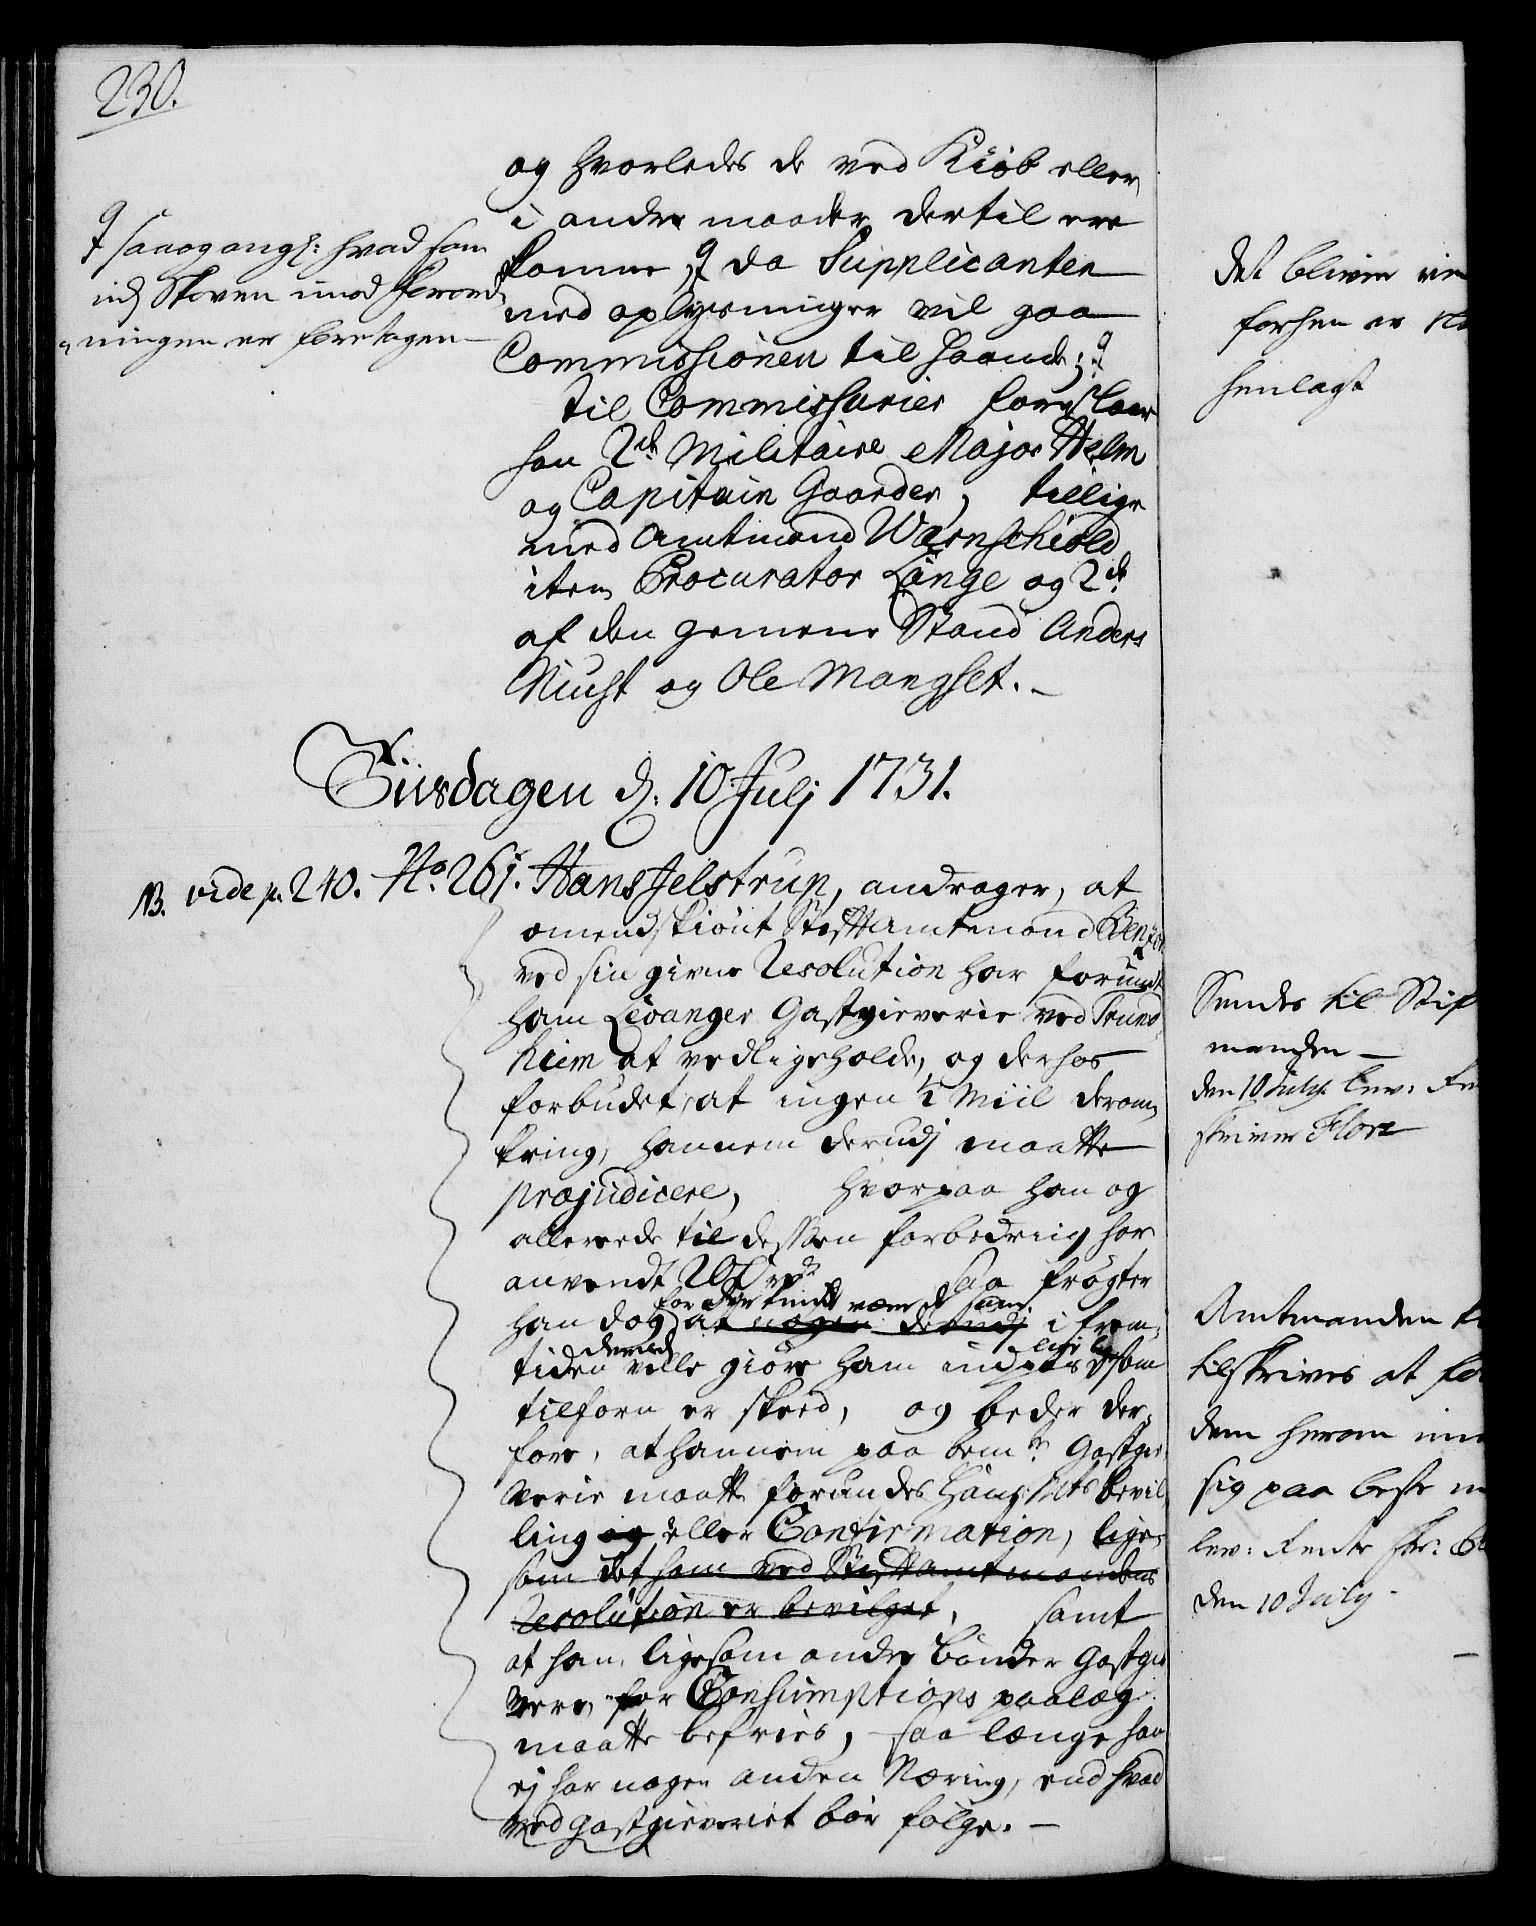 230.
og hvorledes de ved Kiöb eller
i andre maader dertil ere
komne, da Supplicanten
med oplysninger vil gaa
Commissionen til haande;
saa og ang: hvad som
udj Skoven imod Forord¬
ningen er foretagen
til Commissarier foreslaar
han 2de Militaire Major Helm
og Capitain Gaarder, tillige
med Amtmand Wærnschiold
item Procurator Lange og 2de
af den gemene Stand Anders
og Ole Mangset.
Tiisdagen d. 10 Julj 1731.
NB. vide p. 240. No. 261. Hans Jelstrup, andrager, at
omendskiönt Stiftamtmand Benzon
ved sin givne Resolution har forundt
ham Levanger Gastgieverie ved Trund¬
hiem at vedligeholde, og derhos
forbudet, at ingen ½ Miil derom¬
kring, hannem derudj maatte
præjudicere, hvorpaa han og
allerede til dessen forbedring har
anvendt 200 rdr saa frögter
han dog at nogen derudj i frem¬
tiden ville giöre ham indpas, ligesom
tilforn er skeed, og beder der¬
fore, at hannem paa bemte Gastgie¬
verie maatte forundes Kong: Mts bevil¬
ling og eller Confirmation, lige¬
som det ham ved Stiftamtmandens
Resolution er bevilget, samt
at han, ligesom andre bönder Gastgie¬
vere, for Consumptions paalæg
maatte befries, saa længe han
ej har nogen anden Næring, end hvad
ved Gastgieveriet bör fölge.
Det bliver
forhen er
henlagt
Sendes til Stif
manden
den 10 July lev:
skriver Flor
Amtmanden
tilskrives at
dem herom
sig paa beste
lev: Rente Skr:
den 10 July